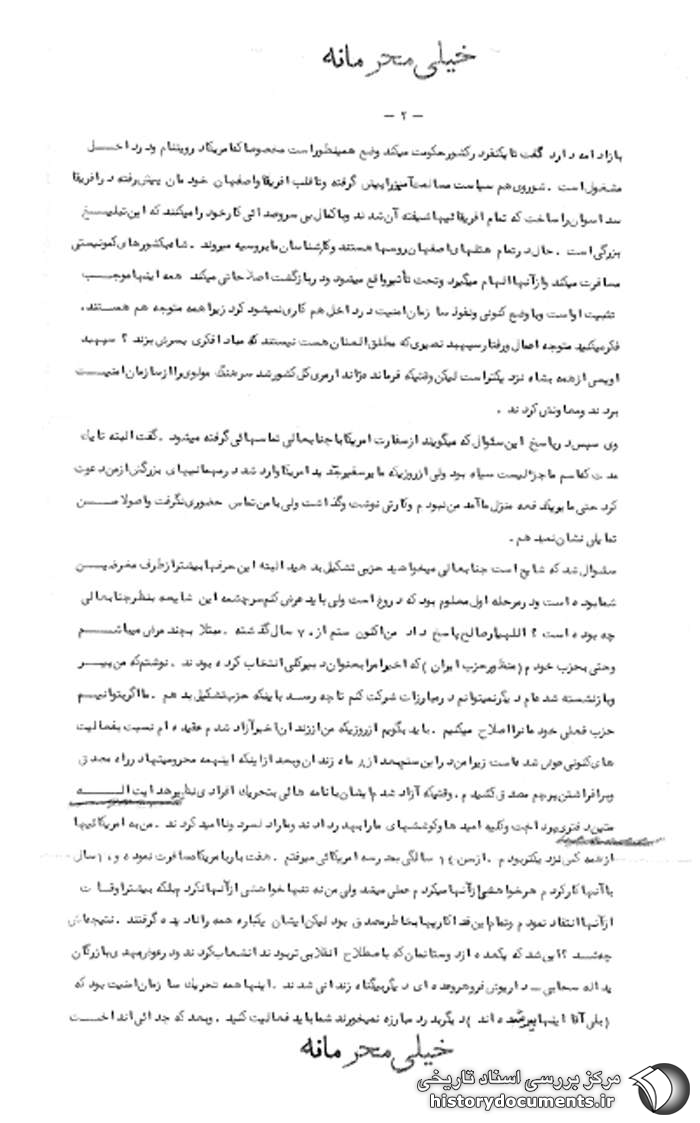 خیلی محرمانه
- ۲ -
باز ادامه دارد گفت تا یکنفر در کشور حکومت میکند وضع همینطور است مخصوصا که امریکا در ویتنام و در داخل
مشغول است . شوروی هم سیاست مسالمت آمیز را پیش گرفته و تا قلب افریقا و اصفهان خودمان پیش رفته در افریقا
سد اسوان را ساخت که تمام افریقائیها شیفته آن شدند و با کمال بی سر و صدائی کار خود را میکنند که این تبلیغ
بزرگی است . حال در تمام هتلهای اصفهان روسها هستند و کارشناسان ما بروسیه میروند . شاه بکشورهای کمونیستی
مسافرت میکند و از آنها الهام میگیرد و تحت تأثیر واقع میشود و در بازگشت اصلاحاتی میکند همه اینها موجب
تثبیت او است و با وضع کنونی و نفوذ سازمان امنیت در داخل هم کاری نمیشود کرد زیرا همه متوجه هم هستند .
فکر میکنید متوجه اعمال و رفتار سپهبد نصیری که مطلق العنان هست نیستند که مبادا فکری بسرش بزند ؟ سپهبد
اویسی از همه بشاه نزدیکتر است لیکن وقتیکه فرمانده ژاندارمری کل کشور شد سرهنگ مولوی را از سازمان امنیت
بردند و معاونش کردند .
وی سپس در پاسخ این سئوال که میگویند از سفارت امریکا با جنابعالی تماسهائی گرفته میشود . گفت البته تا یک
مدت که اسم ما جزء لیست سیاه بود ولی از روزیکه مایر سفیر جدید امریکا وارد شد در مهمانیهای بزرگش از من دعوت
کرد حتی مایر یکدفعه منزل ما آمد من نبودم و کارتی نوشت و گذاشت ولی با من تماس حضوری نگرفت و اصولا من
تمایلی نشان نمیدهم .
سئوال شد که شایع است جنابعالی میخواهید حزبی تشکیل بدهید البته این حرفها بیشتر از طرف مغرضین
شما بوده است و در مرحله اول معلوم بود که دروغ است ولی باید عرض کنم سرچشمه این شایعه بنظر جنابعالی
چه بوده است ؟ اللهیار صالح پاسخ داد من اکنون سنم از ۷۰ سال گذشته . مبتلا بچند مرض میباشم
و حتی بحزب خودم (منظور حزب ایران) که اخیرا مرا بعنوان دبیر کلی انتخاب کرده بودند . نوشتم که من پیر
و بازنشسته شده‌ام دیگر نمیتوانم در مبارزات شرکت کنم تا چه رسد باینکه حزب تشکیل بدهم . ما اگر بتوانیم
حزب فعلی خودمان را اصلاح میکنیم . باید بگویم از روزیکه من از زندان اخیر آزاد شدم عقیده‌ام نسبت بفعالیت
های کنونی عوض شده است زیرا من در این سن بعد از ماه زندان و بعد از اینکه اینهمه محرومیتها در راه مصدق
و برافراشتن پرچم مصدق کشیدم . وقتیکه آزاد شدم ایشان با نامه هائی بتحریک افرادی نظیر هدایت اله
متین دفتری پرداخت و کلیه امیدها و کوششهای ما را بهدر دادند و ما را دلسرد و ناامید کردند . من به امریکائیها
از همه کس نزدیکتر بودم . از سن ۱۴ سالگی بمدرسه امریکائی میرفتم . هفت بار بامریکا مسافرت نموده و ۱۰ سال
با آنها کار کردم هر خواهشی از آنها میکردم عملی میشد ولی من نه تنها خواهشی از آنها نکردم بلکه بیشتر اوقات
از آنها انتقاد نمودم و تمام این فداکاریها بخاطر مصدق بود لیکن ایشان یکباره همه را نادیده گرفتند . نتیجه‌اش
چه شد ؟ این شد که یکعده از دوستانمان که باصطلاح انقلابی تر بودند انشعاب کردند و در عوض مهدی بازرگان
یداله سحابی - داریوش فروهر و عده‌ای دیگر بیگناه زندانی شدند . اینها همه تحریک سازمان امنیت بود که
(بلی آقا اینها پیر شده اند) دیگر بدرد مبارزه نمیخورند شما باید فعالیت کنید . و بعد که جدائی انداخت
خیلی محرمانه
مرکز بررسی اسناد تاریخی
historydocuments.ir